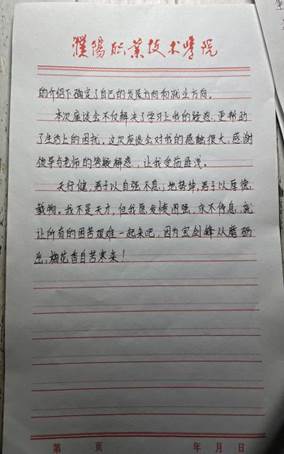 濮阳职业技术学院
的介绍下确定了自己的发展方向和就业方向。
本次座谈会不仅解决了学习上我的疑惑，更帮助
了生活上的困扰，这次座谈会对我的感触很大，感谢
领导与老师的答疑解惑，让我受益匪浅。
天行健，君子以自强不息；地势坤，君子以厚德
载物。我不是天才，但我愿发愤图强，永不停息，就
让所有的困苦艰难一起来吧，因为宝剑锋从磨砺
出，梅花香自苦寒来！
第 页 年 月 日